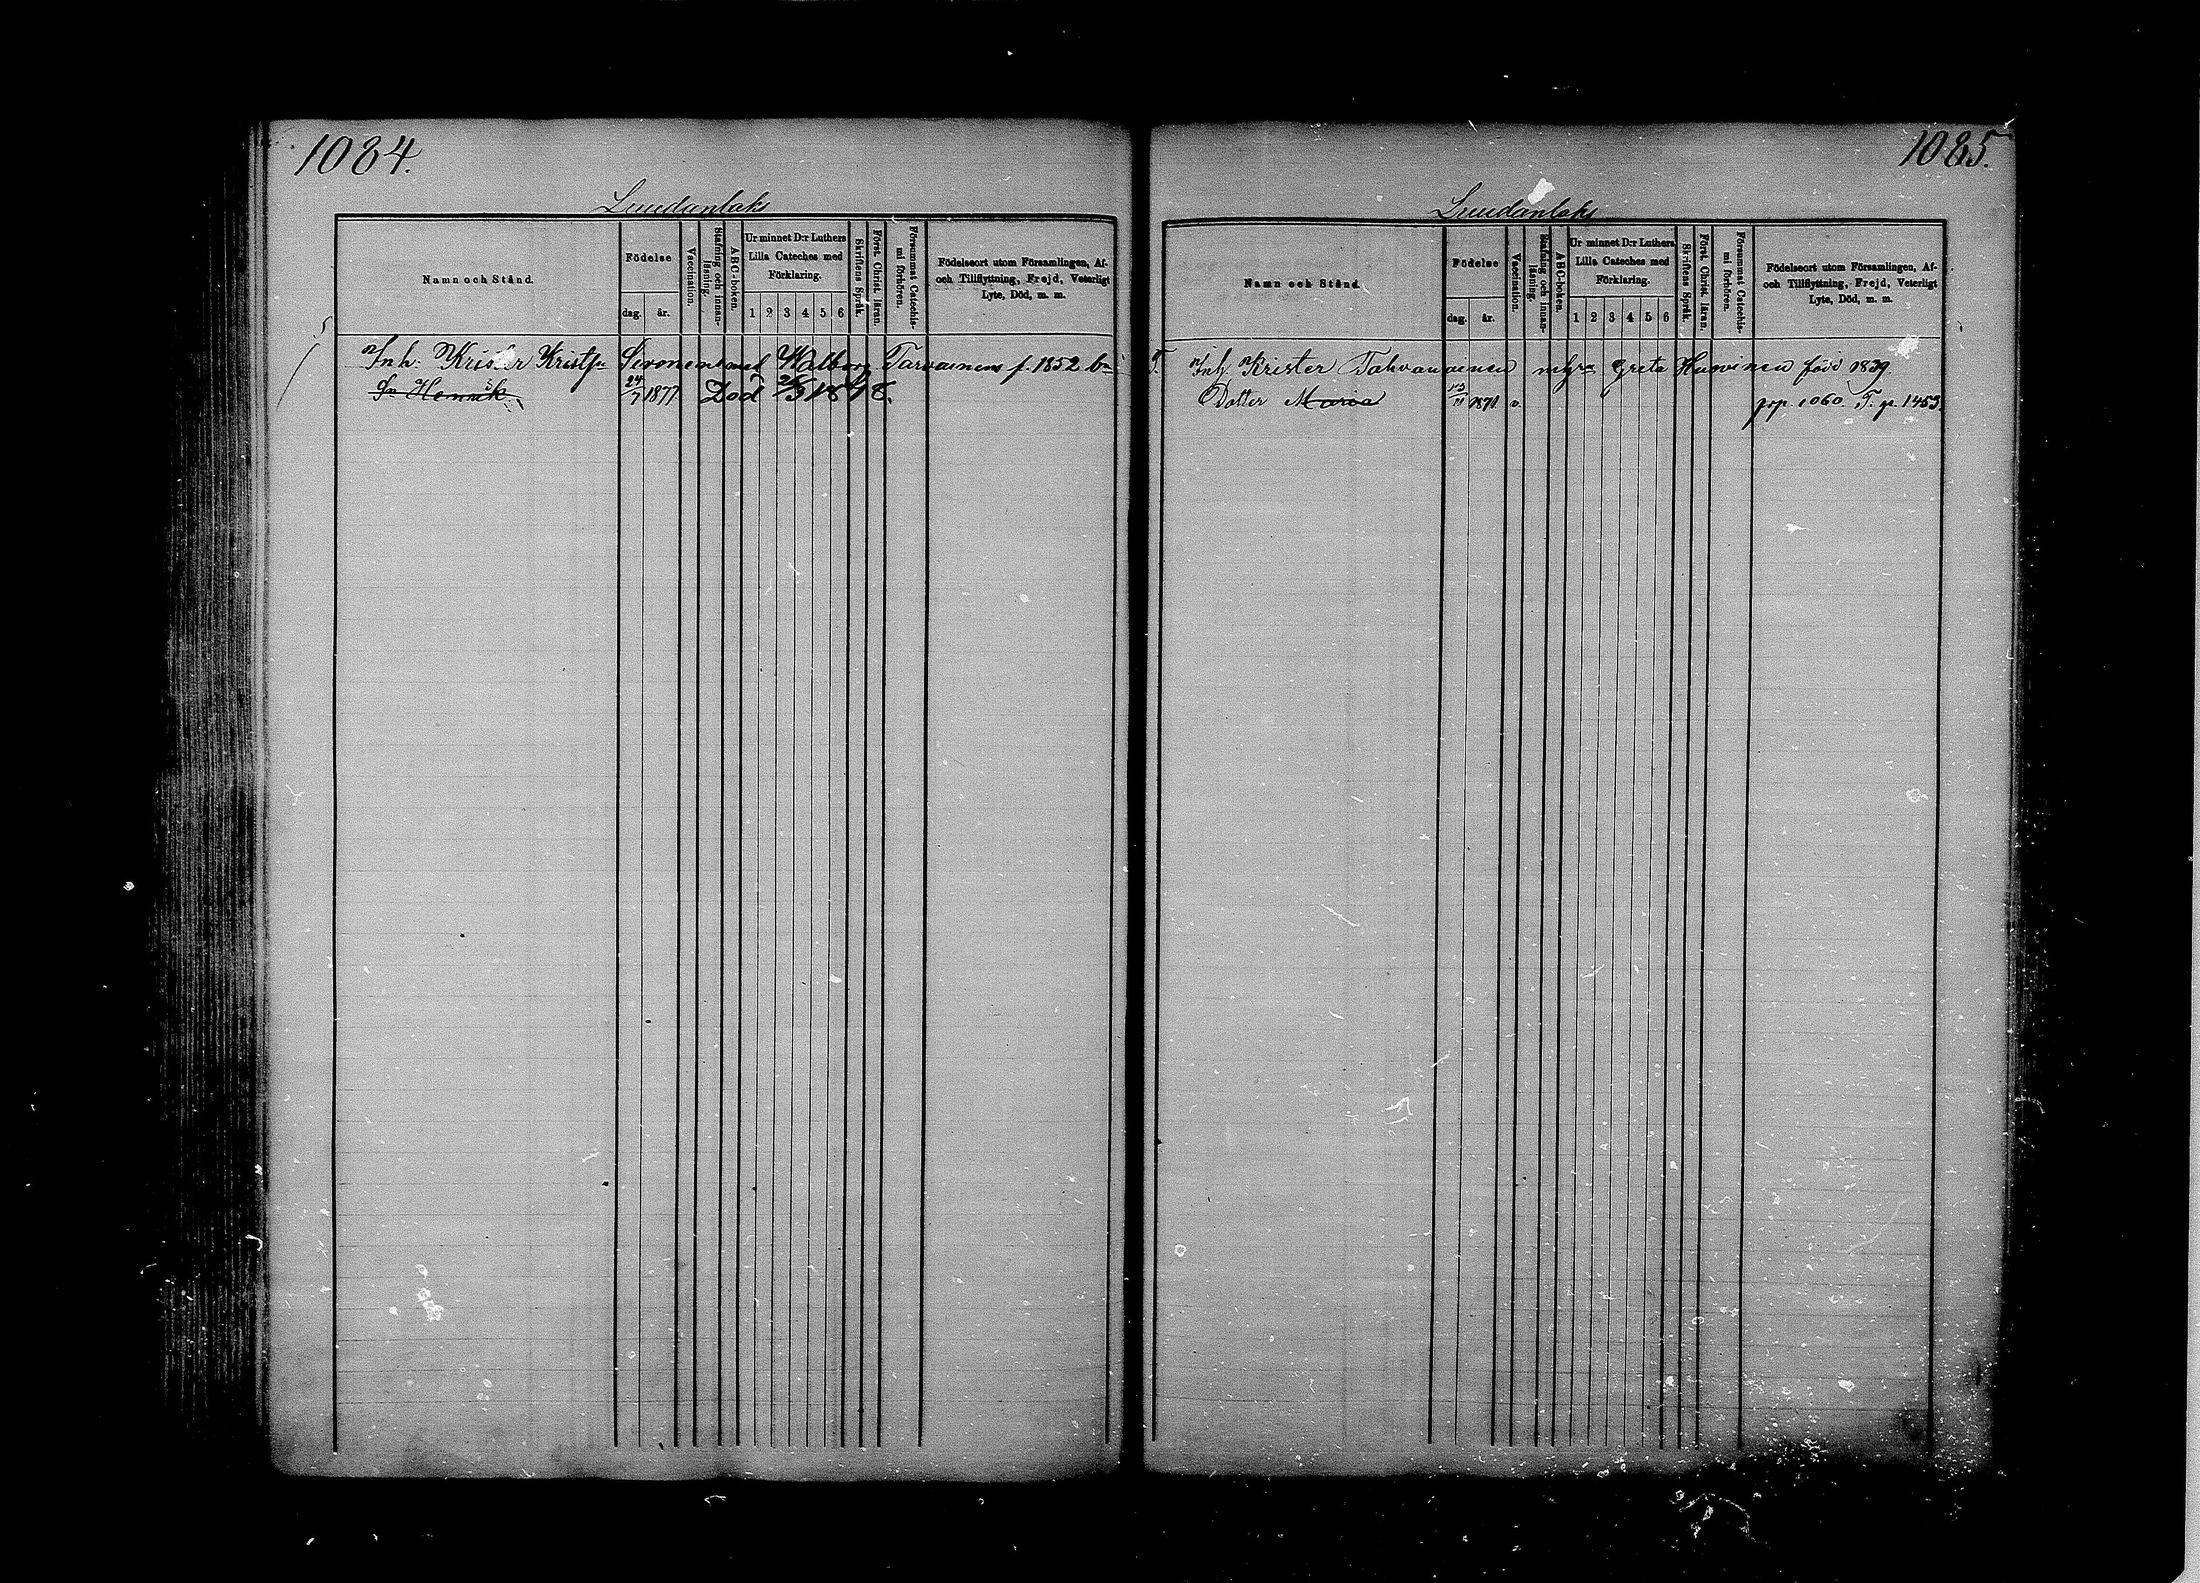 1084.
Luudanlaks
Namn och Stånd.
Födelse
dag. år.
Vaccination.
Stafning och innan-
läsning.
ABC-boken.
Ur minnet D:r Luthers
Lilla Cateches med
Förklaring.
1 2 3 4 5 6
Skriftens Språk.
Först. Christ. läran.
Försummat Catechis-
mi förhören.
Födelseort utom Församlingen, Af-
och Tillflyttning, Frejd, Veterligt
Lyte, Död, m. m.
Inh: Krister Kristfn Sivonens med Walborg Tarvainens f. 1852 bn
Sn Henrik 24/7 1877 Död 1878.
1085.
Luudanlaks
Namn och Stånd.
Födelse
dag. år.
Vaccination.
Stafning och innan-
läsning.
ABC-boken.
Ur minnet D:r Luthers
Lilla Cateches med
Förklaring.
1 2 3 4 5 6
Skriftens Språk.
Först. Christ. läran.
Försummat Catechis-
mi förhören.
Födelseort utom Församlingen, Af-
och Tillflyttning, Frejd, Veterligt
Lyte, Död, m. m.
T. Inh. Krister Tahvanainen Greta född 1839.
Dotter Maria 1871 v. pp. 1060. T. p. 1453.